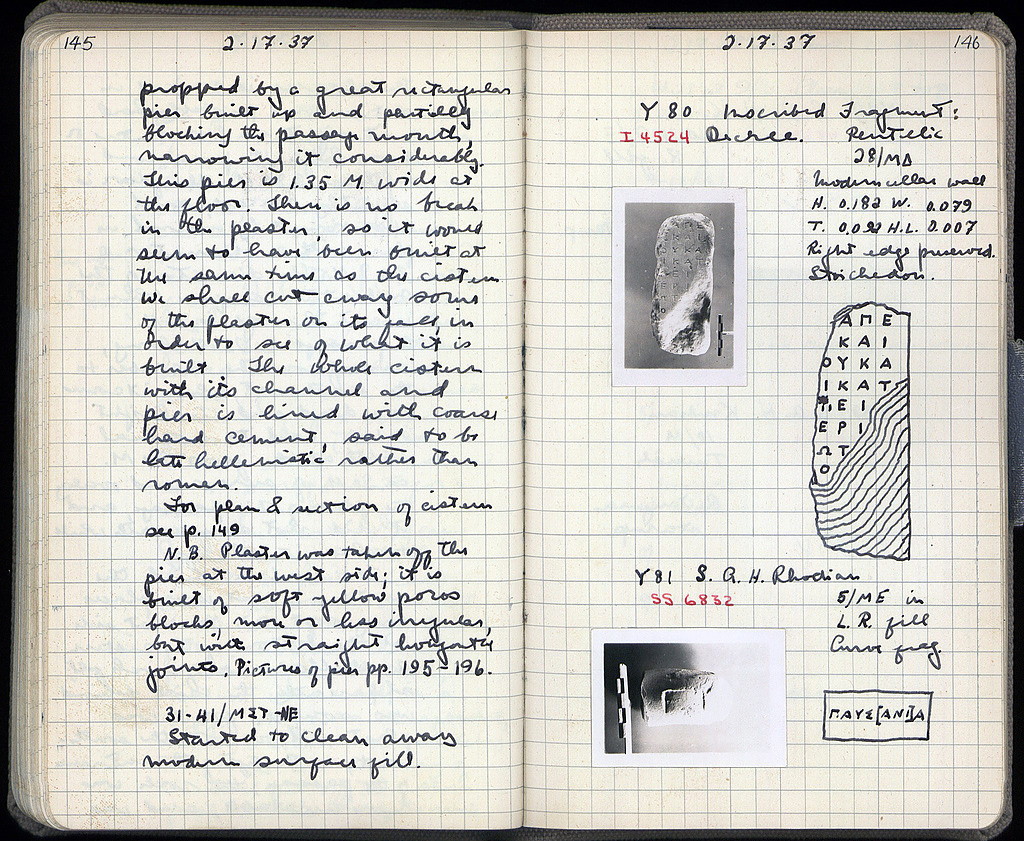 145
2·17·37
propped by a great rectangular
pier built up and partially
blocking the passage mouth,
narrowing it considerably.
This pier is 1.35 M. wide at
the floor. There is no break
in the plaster, so it would
seem to have been built at
the same time as the cistern
We shall cut away some
of the plaster on its face, in
order to see of what it is
built. The whole cistern
with its channel and
pier is lined with coarse
hard cement, said to be
late hellenistic rather than
roman.
For plan & section of cistern
see p. 149
N.B. Plaster was taken off the
pier at the west side; it is
built of soft yellow poros
blocks, more or less irregular,
but with straight horizontal
joints. Pictures of pier pp. 195-196.
31-41/ΜΣΤ-ΝΕ
Started to clean away
modern surface fill.
2·17·37
146
Y 80 Inscribed Fragment:
I 4524 Decree. Pentelic
28/ΜΔ
Modern cellar wall
H. 0.182 W. 0.079
T. H.L. 0.007
Right edge preserved.
Stoichedon.
Α Π Ε
Κ Α Ι
Ο Υ Κ Α
Ι Κ Α Τ
Π Ε Ι
Ε Ρ Ι
Ω Τ
Ο
Y 81 S.A.H. Rhodian
SS 6832
5/ΜΕ in
L.R. fill
Curve frag.
ΠΑΥΣ[ΑΝΙ]Α